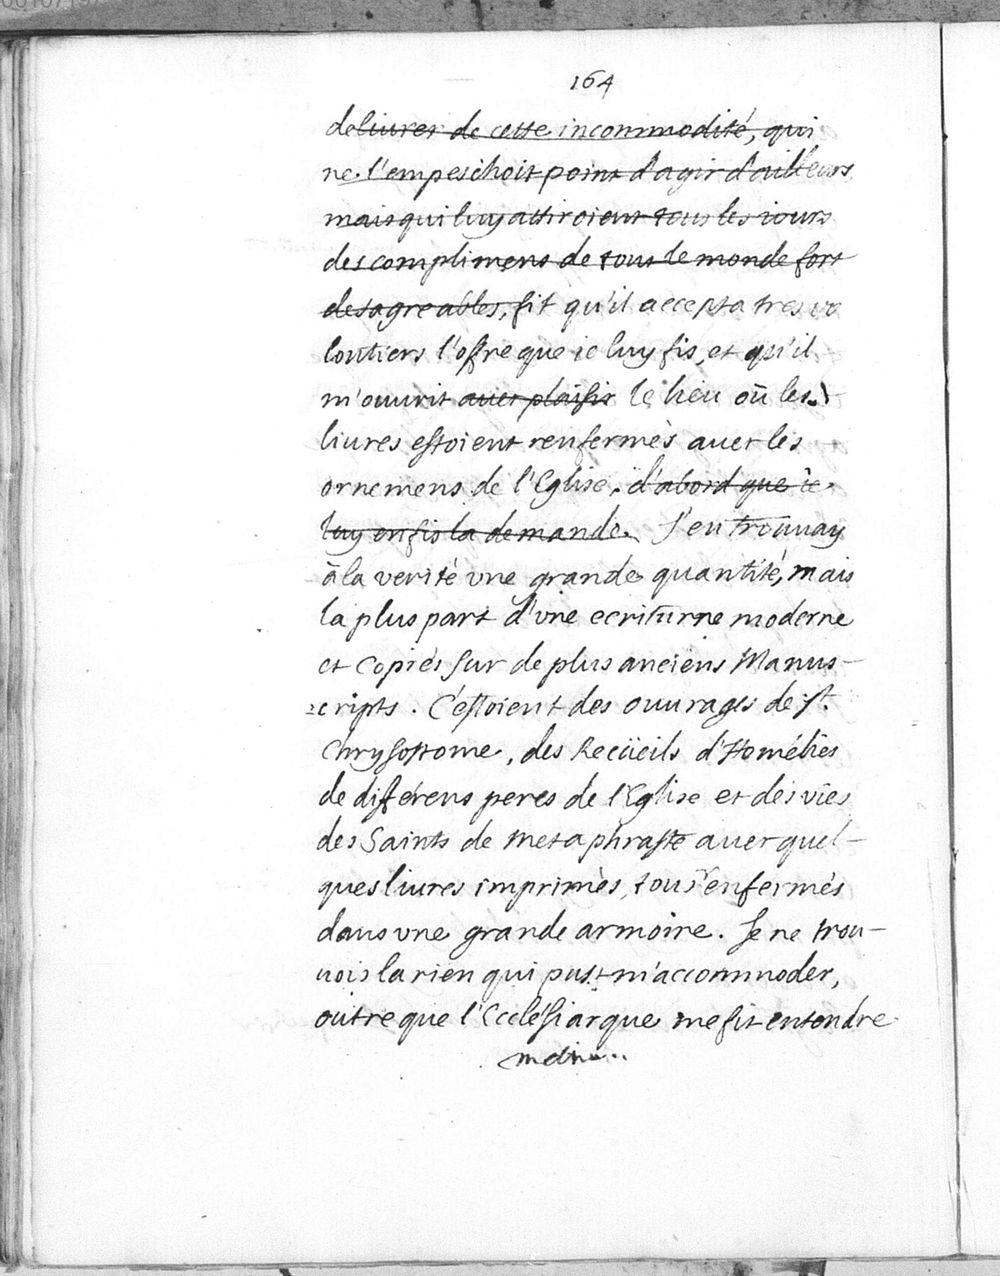 164
deliurer de cette incommodité, qui
ne l'empeschoit point d'agir d'ailleurs
mais qui luy attiroient tous les iours
des complimens de tout le monde fort
desagreables, fit qu'il accepta tres vo
lontiers l'offre que ie luy fis, et qu'il
m'ouurit auec plaisir le lieu où les
liures estoient renfermés auec les
ornemens de l'Eglise. d'abord que ie
luy en fis la demande. J'en trouuay
à la verité vne grande quantité, mais
la plus part d'vne ecriture moderne
et copiés sur de plus anciens Manus-
cripts. C'estoient des ouurages de St.
Chrysostome, des Recüeils d'Homélies
de diférens peres de l'Eglise et des vies
des Saints de Metaphraste auec quel-
ques liures imprimés, tous enfermés
dans vne grande armoire. Je ne trou-
uois la rien qui pust m'accommoder,
outre que l'Ecclésiarque me fit entendre